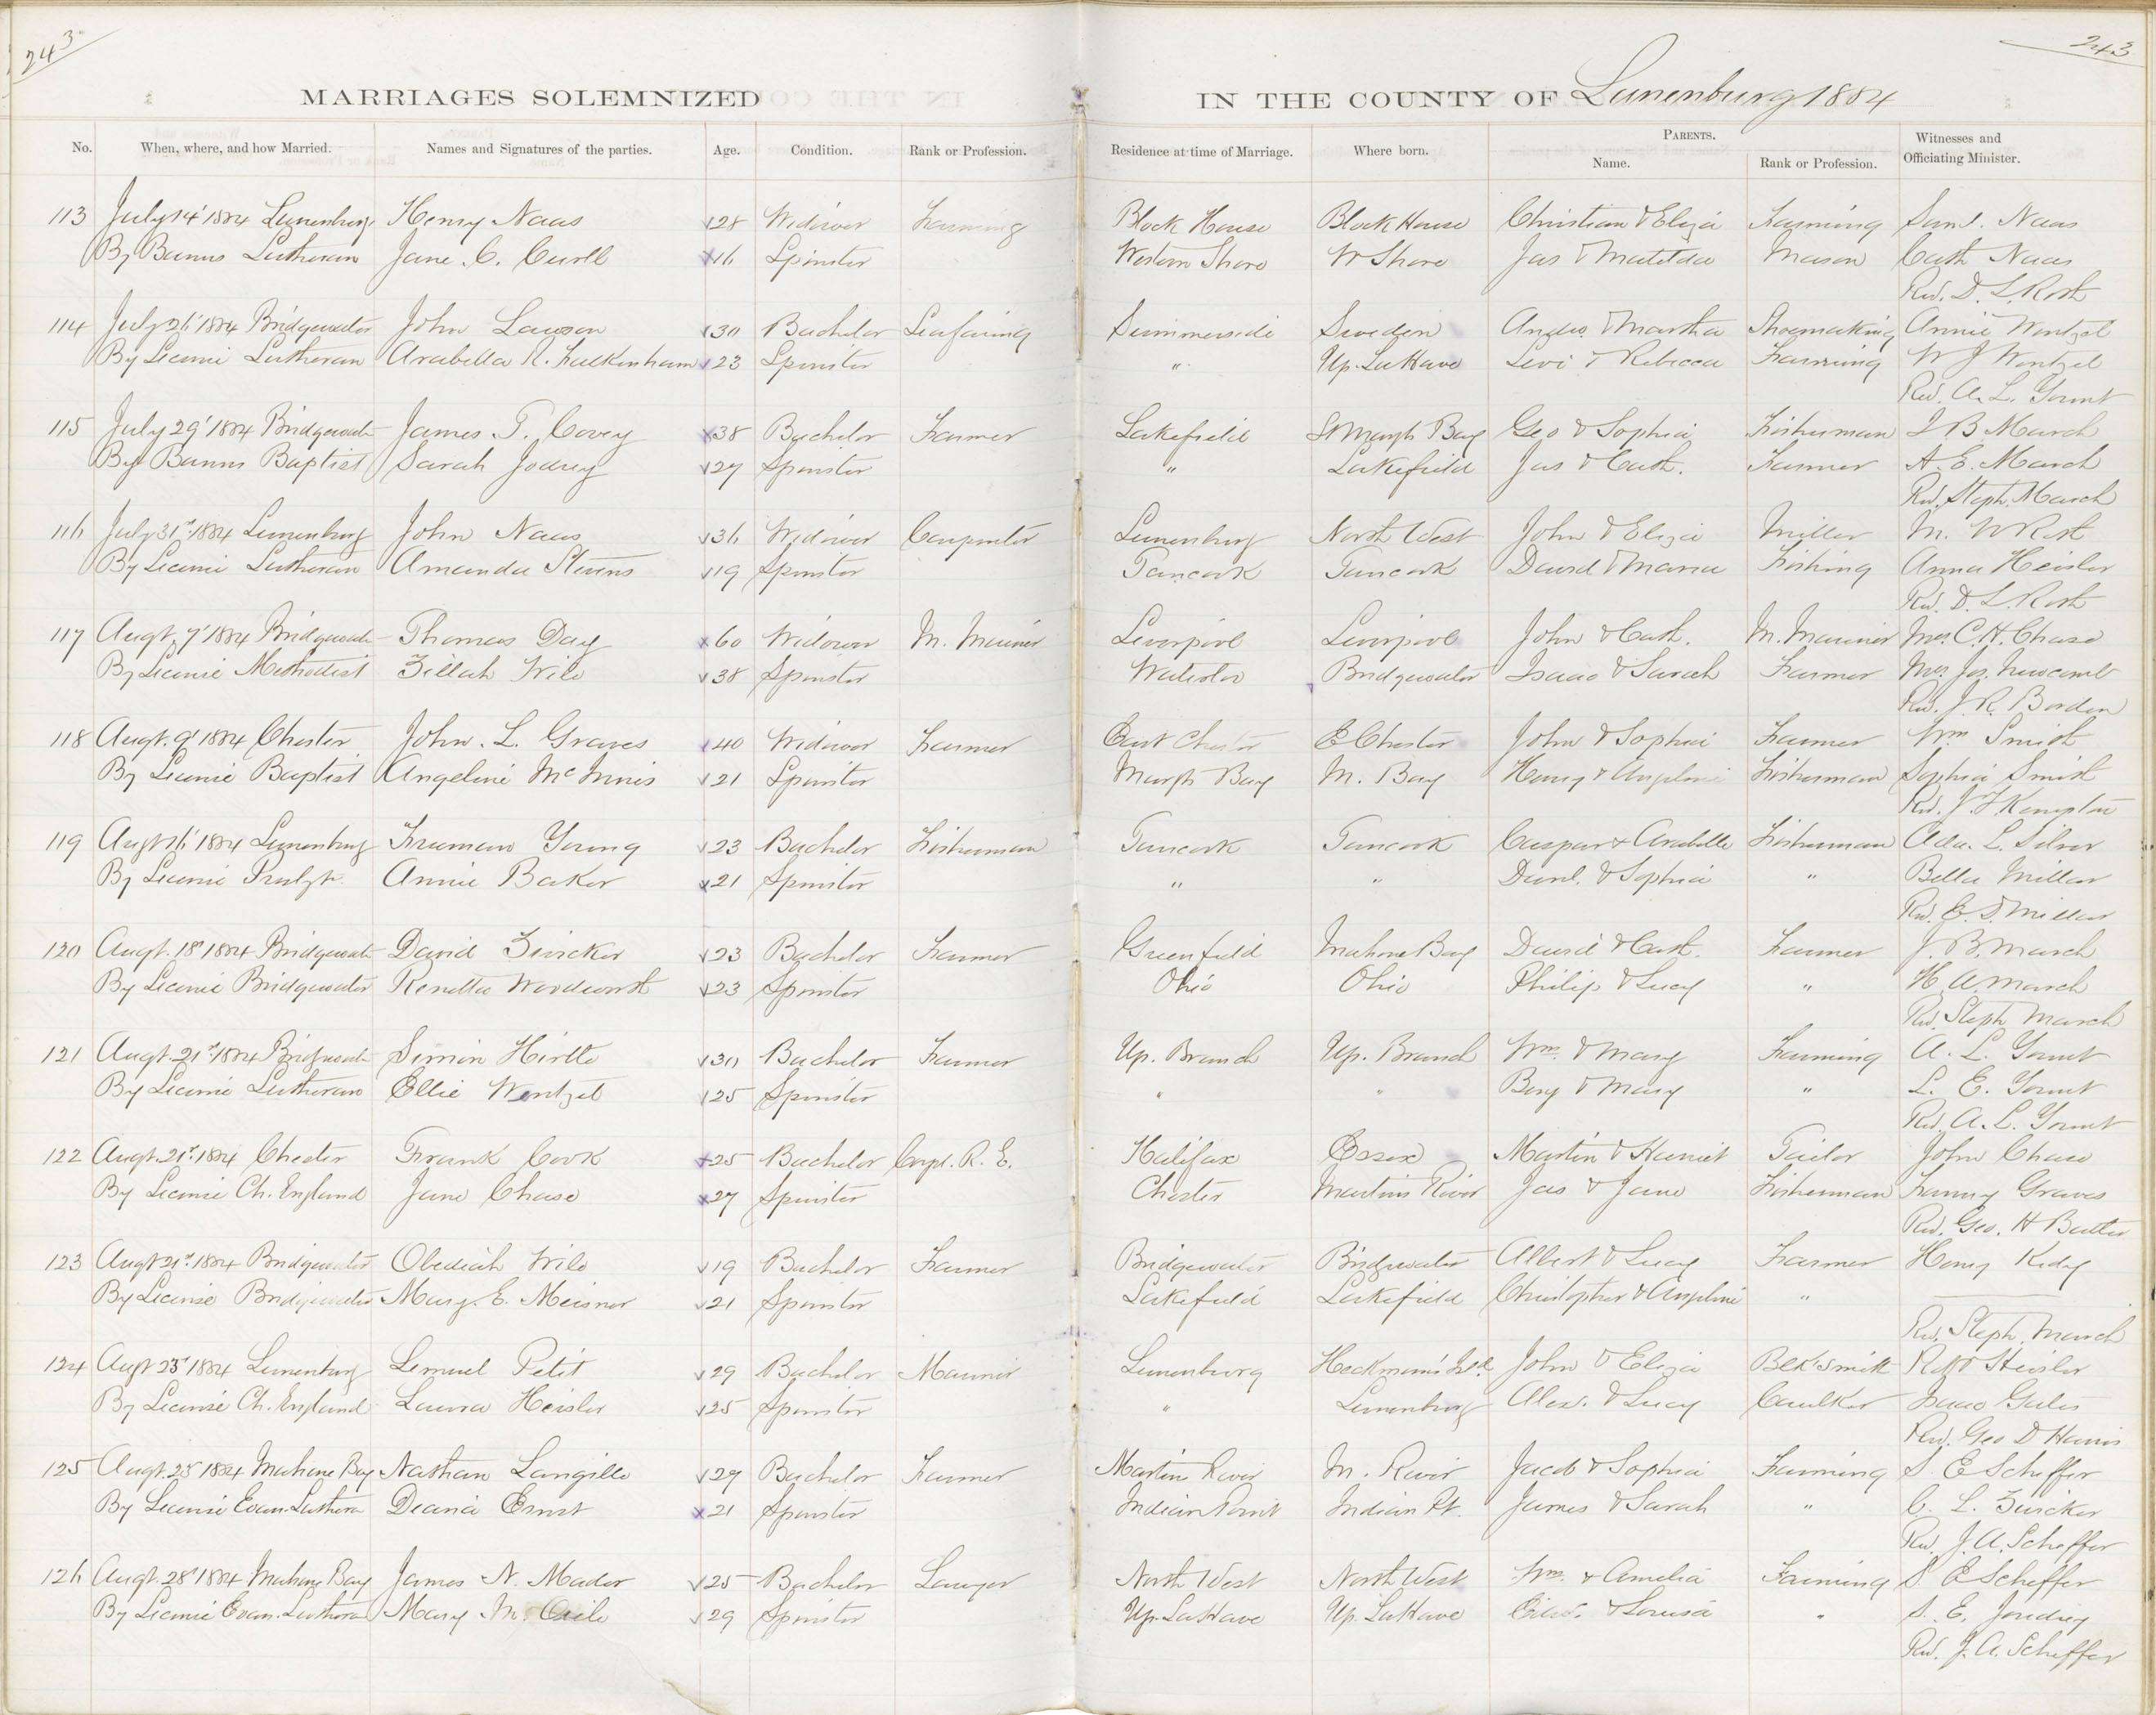 243
243
MARRIAGES SOLEMNIZED IN THE COUNTY OF Lunenburg 1884
No. When, where, and how Married. Names and Signatures of the parties. Age. Condition. Rank or Profession. Residence at time of Marriage. Where born. PARENTS. Name. Rank or Profession. Witnesses and Officiating Minister.
113 July 14' 1884 Lunenburg Henry Naas 28 Widower Farming Block House Block House Christian & Eliza Farming Saml. Naas
By Banns Lutheran Jane. C. 16 Spinster Western Shore W Shore Jas & Matilda Mason Cath Naas
Rev. D. L. Roth
114 July 26' 1884 Bridgewater John Lawson 30 Bachelor Seafaring Summerside Sweden Andw. & Martha Shoemaking Annie Wentzel
By License Lutheran Arabella R. Falkenham 23 Spinster " Up. LaHave Levi & Rebecca Farming W J Wentzel
Rev. A. L. Yount
115 July 29' 1884 Bridgewater James T. Covey 38 Bachelor Farmer Lakefield St Margts Bay Geo & Sophia Fisherman J B March
By Banns Baptist Sarah Jodrey 27 Spinster " Lakefield Jas & Cath. Farmer A. E. March
Rev. Steph. March
116 July 31st 1884 Lunenburg John Naas 36 Widower Carpenter Lunenburg North West John & Eliza Miller M. W Roth
By License Lutheran Amanda Stevens 19 Spinster Tancook Tancook David & Maria Fishing Anna Heisler
Rev. D. L. Roth
117 Augt. 7' 1884 Bridgewater Thomas Day 60 Widower M. Mariner Liverpool Liverpool John & Cath. M. Mariner Mrs C. H. Chase
By License Methodist Zillah Wile 38 Spinster Bridgewater Isaac & Sarah Farmer Mrs. Jos. Newcomb
Rev. J. R. Borden
118 Augt. 9' 1884 Chester John. L. Graves 40 Widower Farmer East Chester E Chester John & Sophia Farmer Wm Smith
By License Baptist Angeline McInnis 21 Spinster Margts Bay M. Bay Henry & Angeline Fisherman Sophia Smith
Rev. J. F. Kempton
119 Augt 16' 1884 Lunenburg Freeman Young 23 Bachelor Fisherman Tancook Tancook Caspar & Arabella Fisherman Ada. L. Silver
By License Annie Baker 21 Spinster " " Danl. & Sophia " Bella Millar
Rev. E. D. Millar
120 Augt. 18' 1884 Bridgewater David Zwicker 23 Bachelor Farmer Greenfield Mahone Bay David & Cath. Farmer J. B. March
By License Bridgewater Renetta Wordworth 23 Spinster Ohio Ohio Philip & Lucy " H. A. March
Rev. Steph March
121 Augt. 21st 1884 Bridgewater Simon Hirtle 30 Bachelor Farmer Up. Branch Up. Branch Wm. & Mary Farming A. L. Yount
By License Lutheran Ellie Wentzel 25 Spinster " " Benj & Mary " L. E. Yount
Rev. A. L. Yount
122 Augt. 21st 1884 Chester Frank Cook 25 Bachelor Corpl. R. E. Halifax Essex Martin & Harriet Tailor John Chase
By License Ch. England Jane Chase 27 Spinster Chester Martins River Jas & Jane Fisherman Fanny Graves
Rev. Geo. H Butler
123 Augt 21st 1884 Bridgewater Obediah Wile 19 Bachelor Farmer Bridgewater Bridgewater Albert & Lucy Farmer Henry Kedy
By License Bridgewater Mary. E. Meisner 21 Spinster Lakefield Lakefield Christopher & Angeline "
Rev. Steph. March
124 Augt 23rd 1884 Lunenburg Lemuel Petit 29 Bachelor Mariner Lunenburg Heckman's Isld. John & Eliza Blk Smith Robt Heisler
By License Ch. England Laura Heisler 25 Spinster " Lunenburg Alex. & Lucy Caulker Isaac Gates
Rev. Geo D Harris
125 Augt. 25' 1884 Mahone Bay Nathan Langille 27 Bachelor Farmer Martin River M. River Jacob & Sophia Farming S. E Scheffer
By License Evan. Luthera Deana Ernst 21 Spinster Indian Point Indian Pt. James & Sarah " C. L. Zwicker
Rev. J. A. Scheffer
126 Augt. 28' 1884 Mahone Bay James N. Mader 25 Bachelor Lawyer North West North West Wm. & Amelia Farming S. E Scheffer
By License Evan. Luthera Mary M. 29 Spinster Up. LaHave Up. LaHave & Louisa " S. E. Joudrey
Rev. J. A. Scheffer